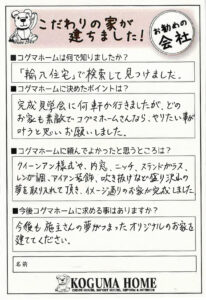 こだわりの家が
建ちました!
お勧めの
会社
■コグマホームは何で知りましたか?
「輸入住宅」で検索して見つけました。
■コグマホームに決めたポイントは?
完成見学会に何軒か行きましたが、どの
お家も素敵でコグマホームさんなら、やりたい事が
叶うと思いお願いしました。
■コグマホームに頼んでよかったと思うところは?
クイーンアン様式や、内窓、ニッチ、ステンドガラス、
レンガ調、アイアン装飾、吹き抜けなど盛り沢山の
夢を取り入れて頂き、イメージ通りのお家が完成しました
■今後コグマホームに求める事はありますか?
今後も施主さんの夢がつまったオリジナルのお家を
建ててください。
名前
KOGUMA HOME